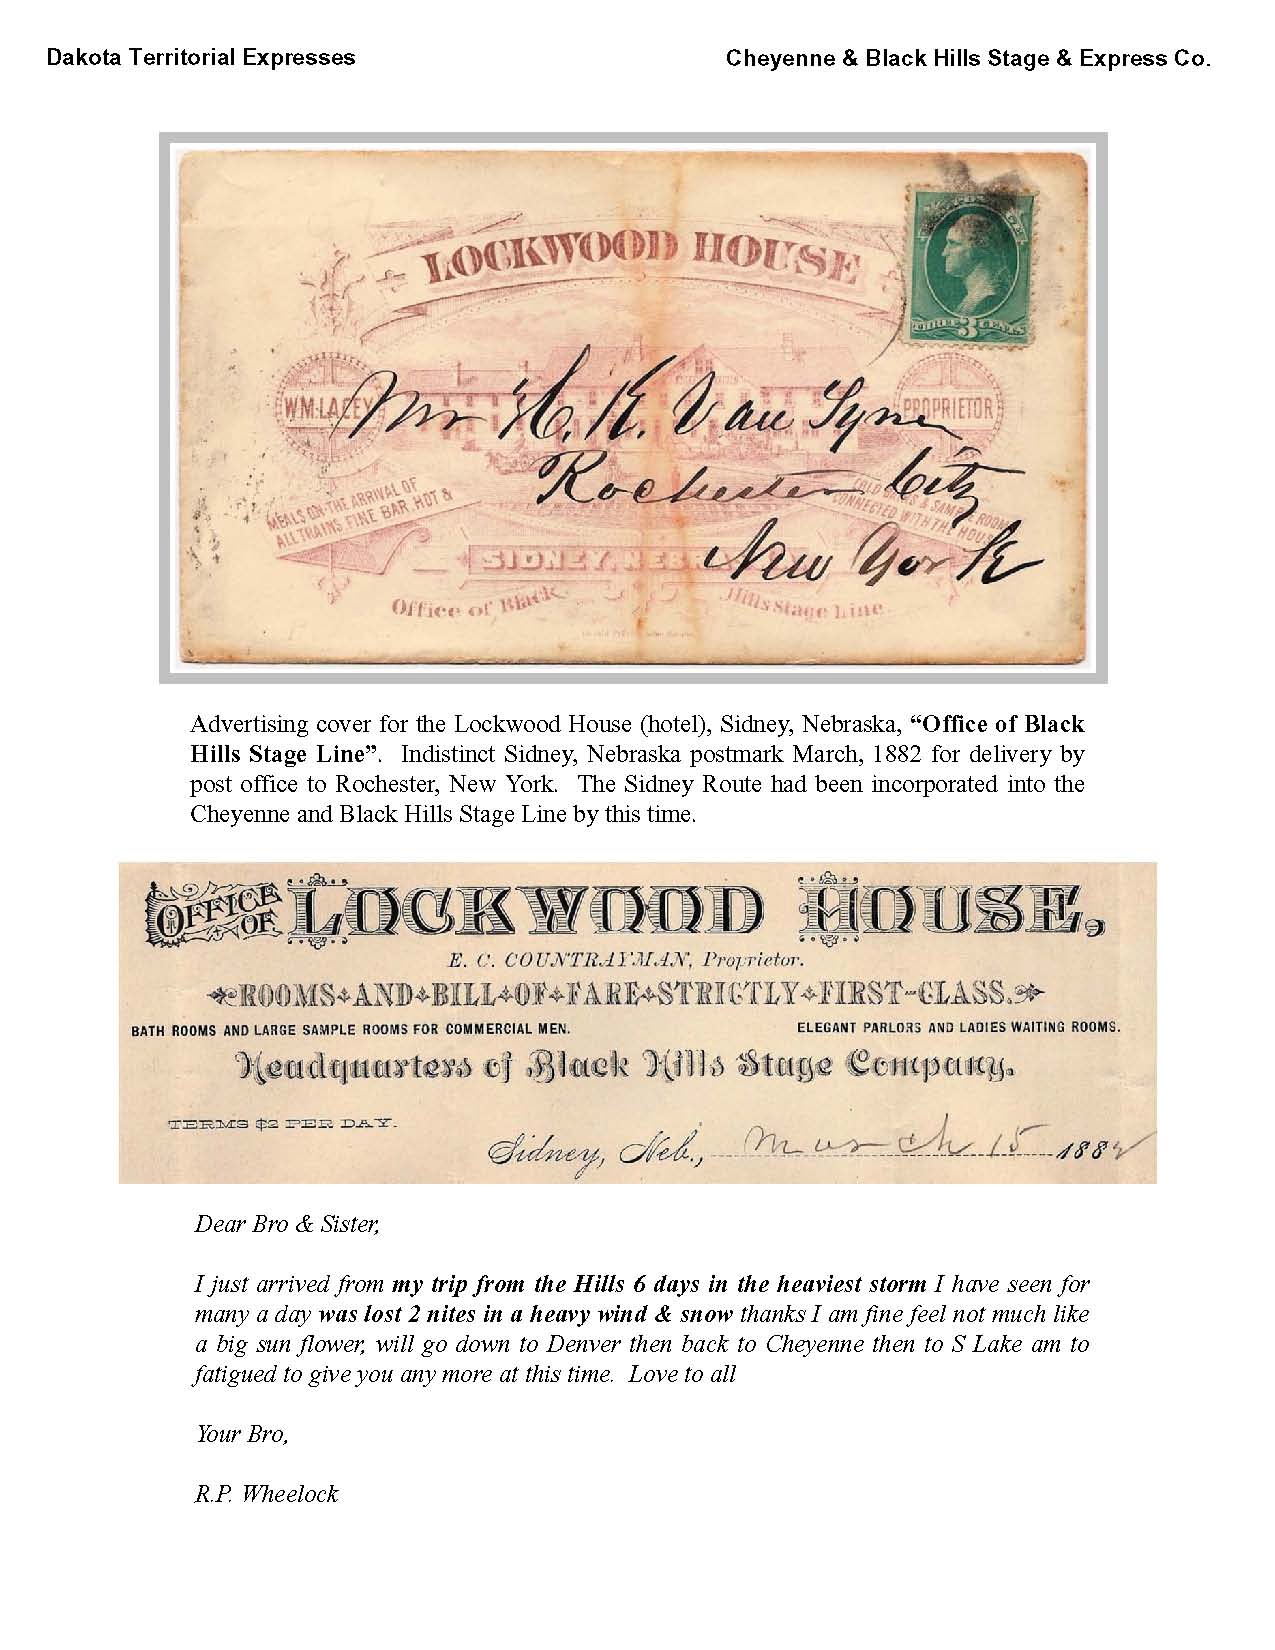 Dakota Territorial Expresses
Cheyenne & Black Hills Stage & Express Co.
LOCKWOOD HOUSE
THREE 3 CENTS
WM. LACEY
PROPRIETOR
Mr H. K. Van Syne
Rochester City
New York
MEALS ON THE ARRIVAL OF
ALL TRAINS FINE BAR, HOT &
COLD & SAMPLE ROOM
CONNECTED WITH THE HOUSE
SIDNEY, NEBRA
Office of Black Hills Stage Line.
Advertising cover for the Lockwood House (hotel), Sidney, Nebraska, “Office of Black
Hills Stage Line”. Indistinct Sidney, Nebraska postmark March, 1882 for delivery by
post office to Rochester, New York. The Sidney Route had been incorporated into the
Cheyenne and Black Hills Stage Line by this time.
OFFICE OF LOCKWOOD HOUSE,
E. C. COUNTRAYMAN, Proprietor.
ROOMS AND BILL OF FARE STRICTLY FIRST-CLASS.
BATH ROOMS AND LARGE SAMPLE ROOMS FOR COMMERCIAL MEN.
ELEGANT PARLORS AND LADIES WAITING ROOMS.
Headquarters of Black Hills Stage Company.
TERMS $2 PER DAY.
Sidney, Neb., March 15 1882
Dear Bro & Sister,
I just arrived from my trip from the Hills 6 days in the heaviest storm I have seen for
many a day was lost 2 nites in a heavy wind & snow thanks I am fine feel not much like
a big sun flower, will go down to Denver then back to Cheyenne then to S Lake am to
fatigued to give you any more at this time. Love to all
Your Bro,
R.P. Wheelock